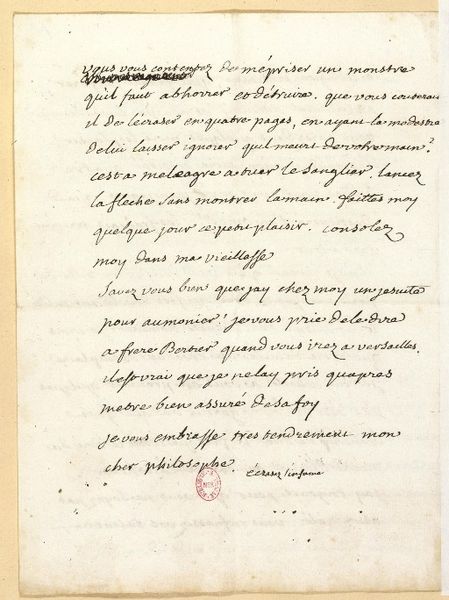 vous vous contentez de mépriser un monstre
qu'il faut abhorrer et détruire. que vous couterait
il de lécraser en quatre pages, en ayant la modestie
de lui laisser ignorer qu'il meurt de votre main?
cest a meleagre a tuer le sanglier. lancez
la fleche sans montrer la main. faittes moy
quelque jour ce petit plaisir. consolez
moy dans ma vieillesse
savez vous bien que jay chez moy un jesuite
pour aumonier? je vous prie de le dire
a frere Bertier quand vous irez a versailles.
il est vrai que je ne lay pris quapres
metre bien assuré de sa foy
je vous embrasse tres tendrement mon
cher philosophe.
écrasez l'infame